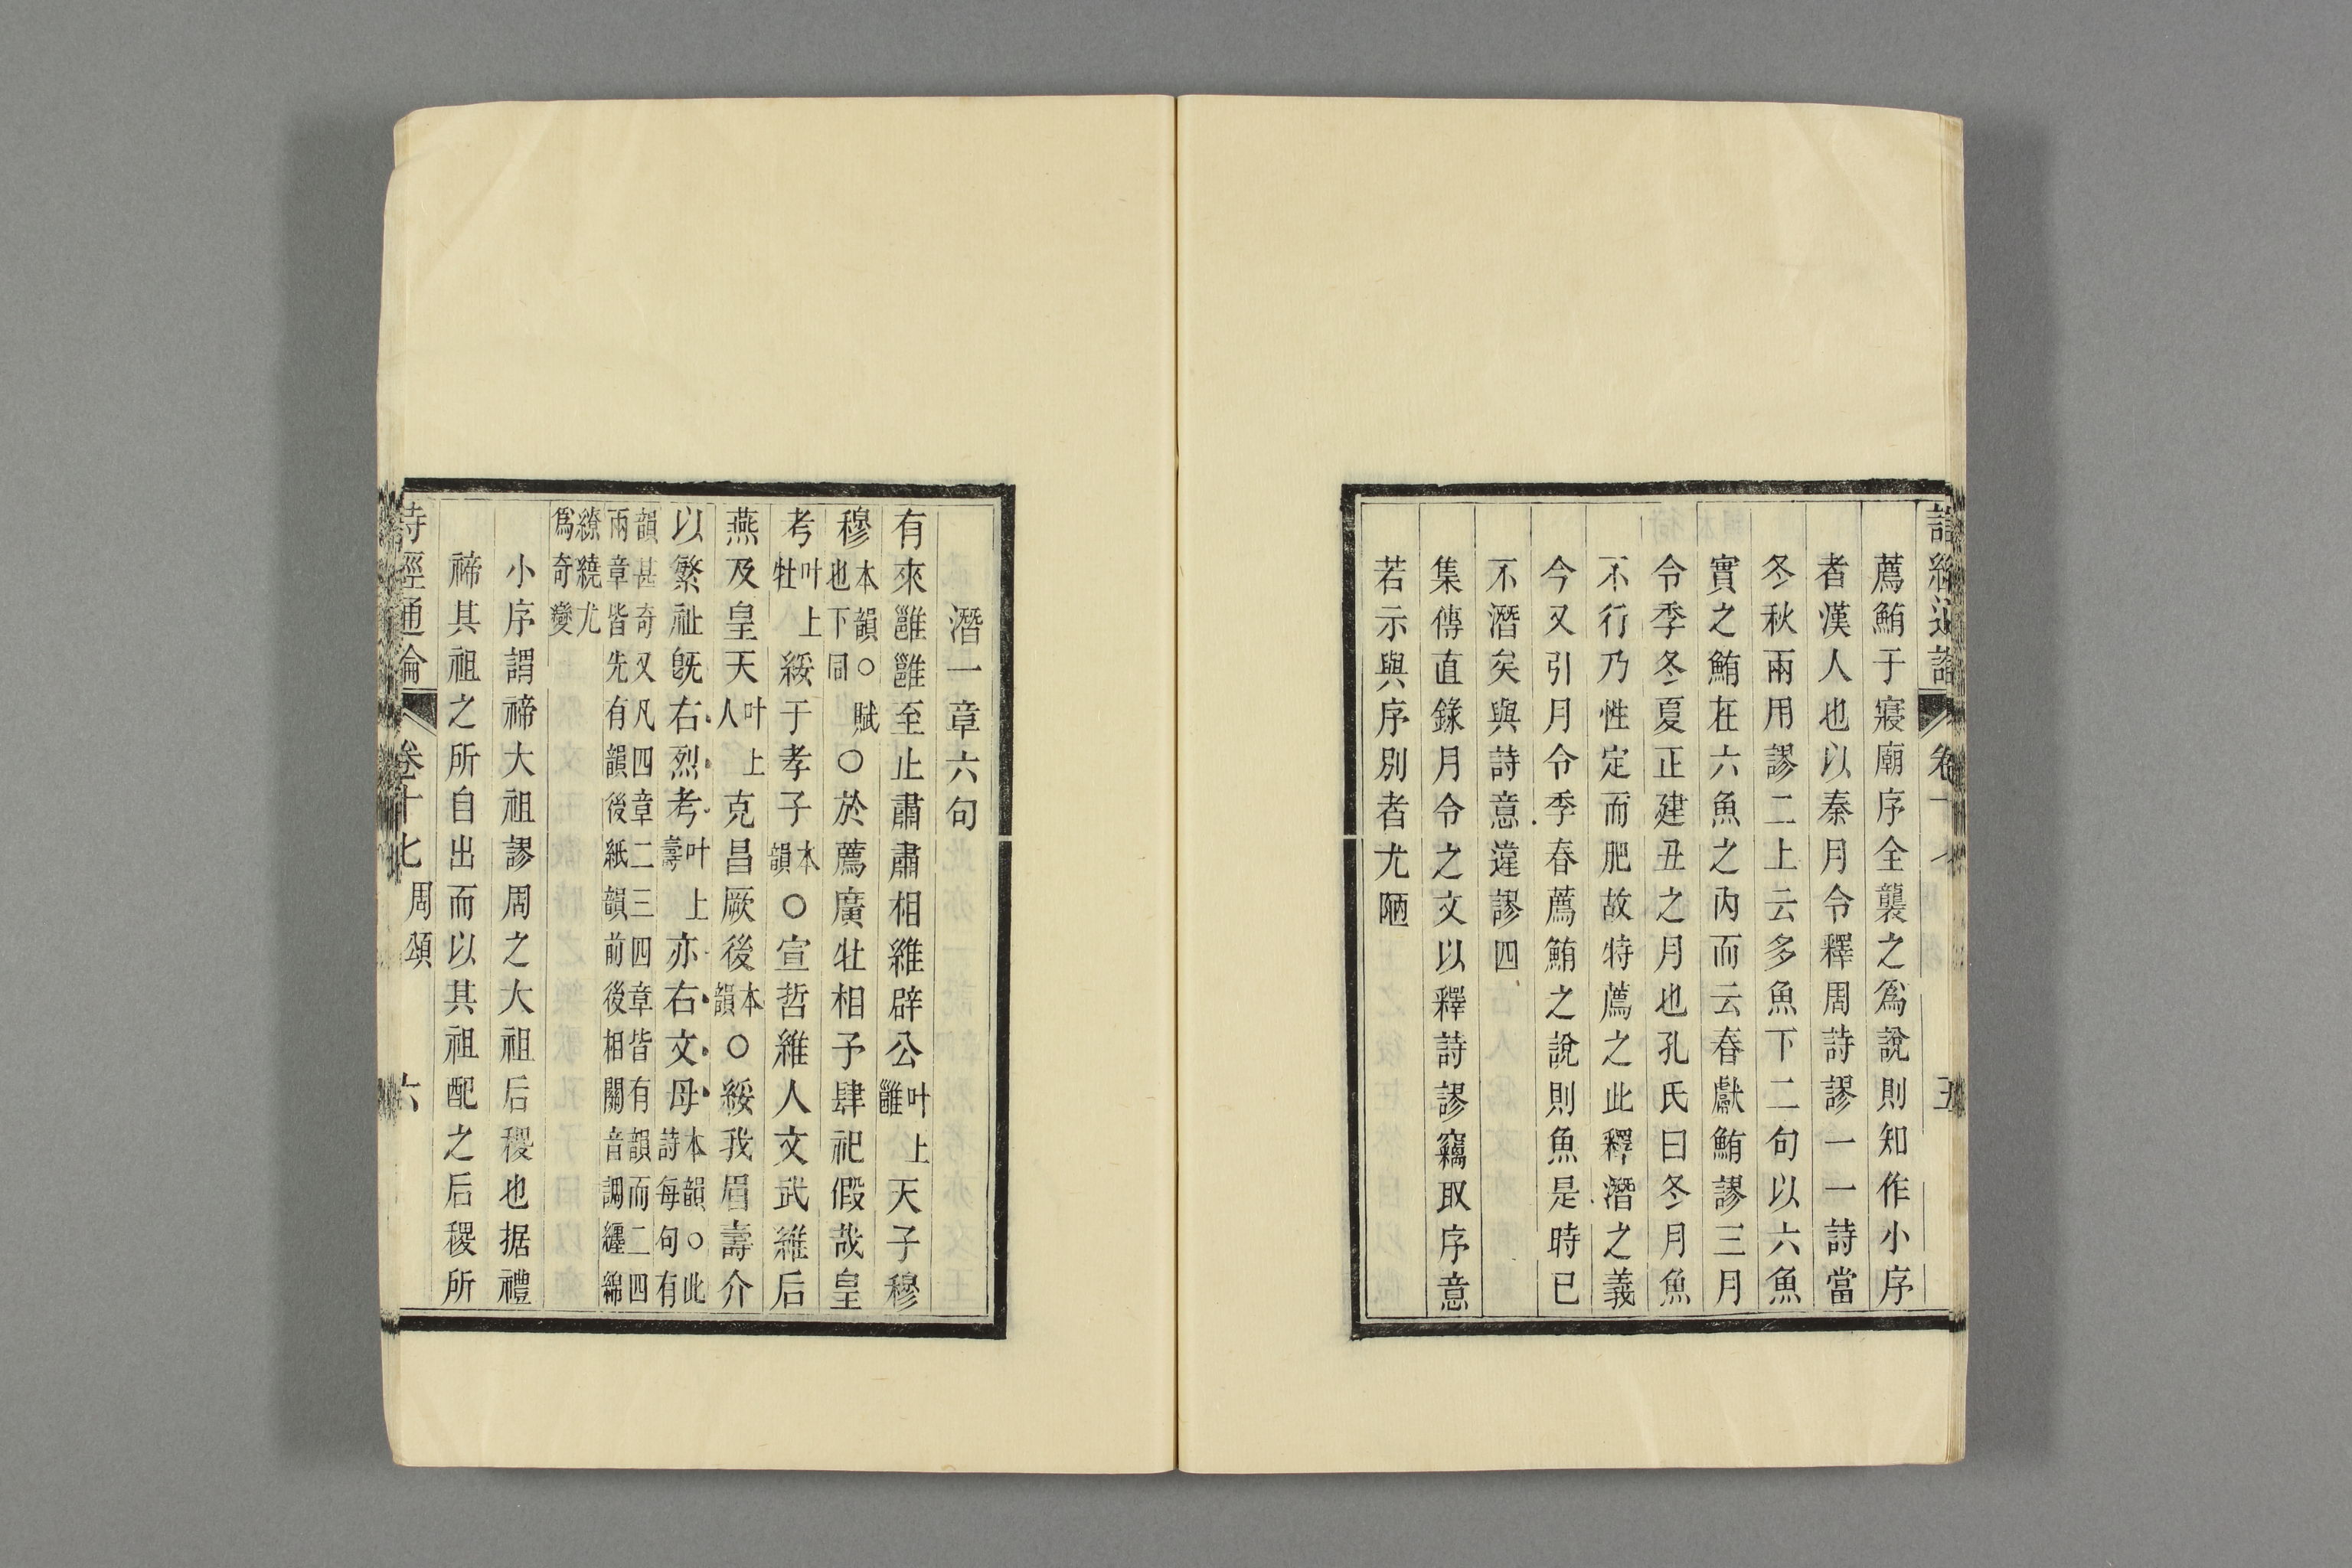 詩經通論 卷十七 五
薦鮪于寢廟序全襲之爲說則知作小序
者漢人也以秦月令釋周詩謬一一詩當
冬秋兩用謬二上云多魚下二句以六魚
實之鮪在六魚之內而云春獻鮪謬三月
令季冬夏正建丑之月也孔氏曰冬月魚
不行乃性定而肥故特薦之此釋潛之義
今又引月令季春薦鮪之說則魚是時已
不潛矣與詩意違謬四
集傳直錄月令之文以釋詩謬竊取序意
若示與序別者尤陋
潛一章六句
有來雝雝至止肅肅相維辟公叶上雝天子穆
穆本韻○賦也下同○於薦廣牡相予肆祀假哉皇
考叶上牡綏于孝子本韻○宣哲維人文武維后
燕及皇天叶上人克昌厥後本韻○綏我眉壽介
以繁祉旣右烈考叶上壽亦右文母本韻○此詩每句有
韻甚奇又凡四章二三四章皆有韻而二四
兩章皆先有韻後紙韻前後相關音調纏綿
繚繞尤爲奇變
小序謂禘大祖謬周之大祖后稷也据禮
禘其祖之所自出而以其祖配之后稷所
詩經通論 卷十七 周頌 六